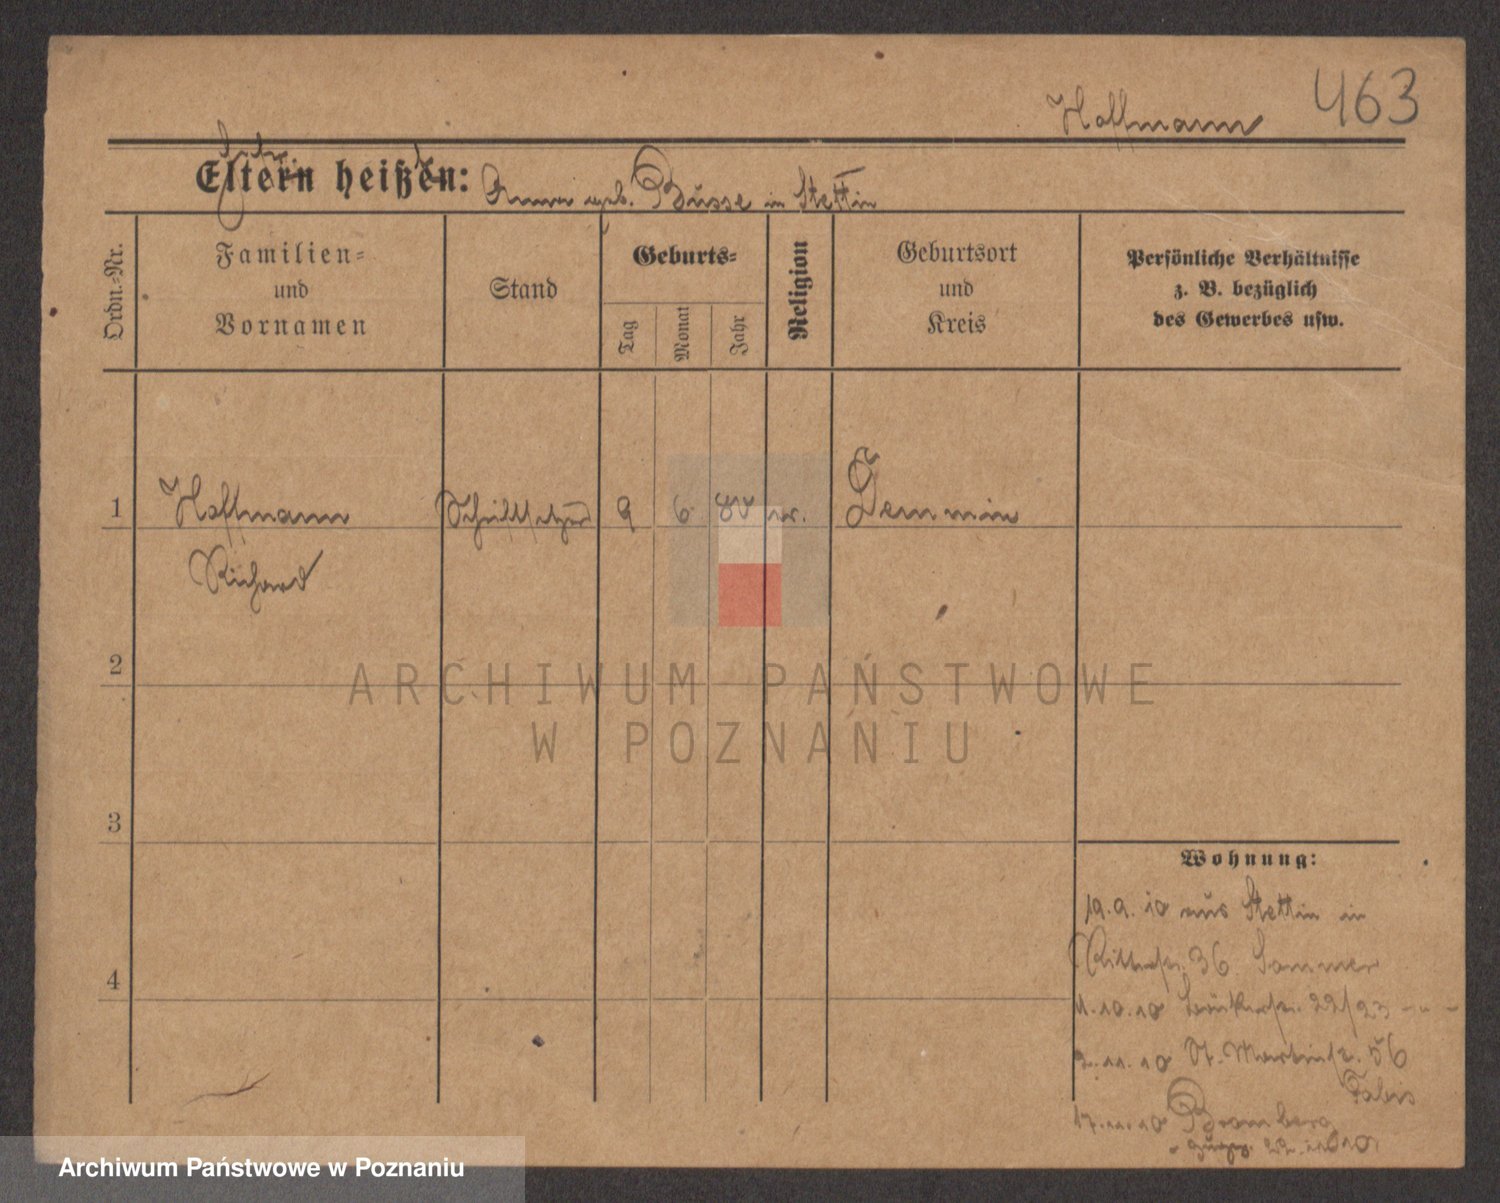 463
Hoffmann
Eltern heißen:
Anna geb. Busse in Stettin
Ordn.-Nr.
Familien-
und
Vornamen
Stand
Geburts-
Tag
Monat
Jahr
Religion
Geburtsort
und
Kreis
Persönliche Verhältnisse
z. B. bezüglich
des Gewerbes usw.
1
Hoffmann
Schriftsetzer
9
6
ev.
Demmin
Richard
2
ARCHIWUM PAŃSTWOWE
W POZNANIU
3
Wohnung:
19.9.10 aus Stettin in
Ritterstr. 36 Sommer
4
1.10.10 Bäckerstr. 22/23 - " -
2.11.10 St. Martinstr. 56
Fabis
17.11.10 Bromberg
22.11.10
Archiwum Państwowe w Poznaniu